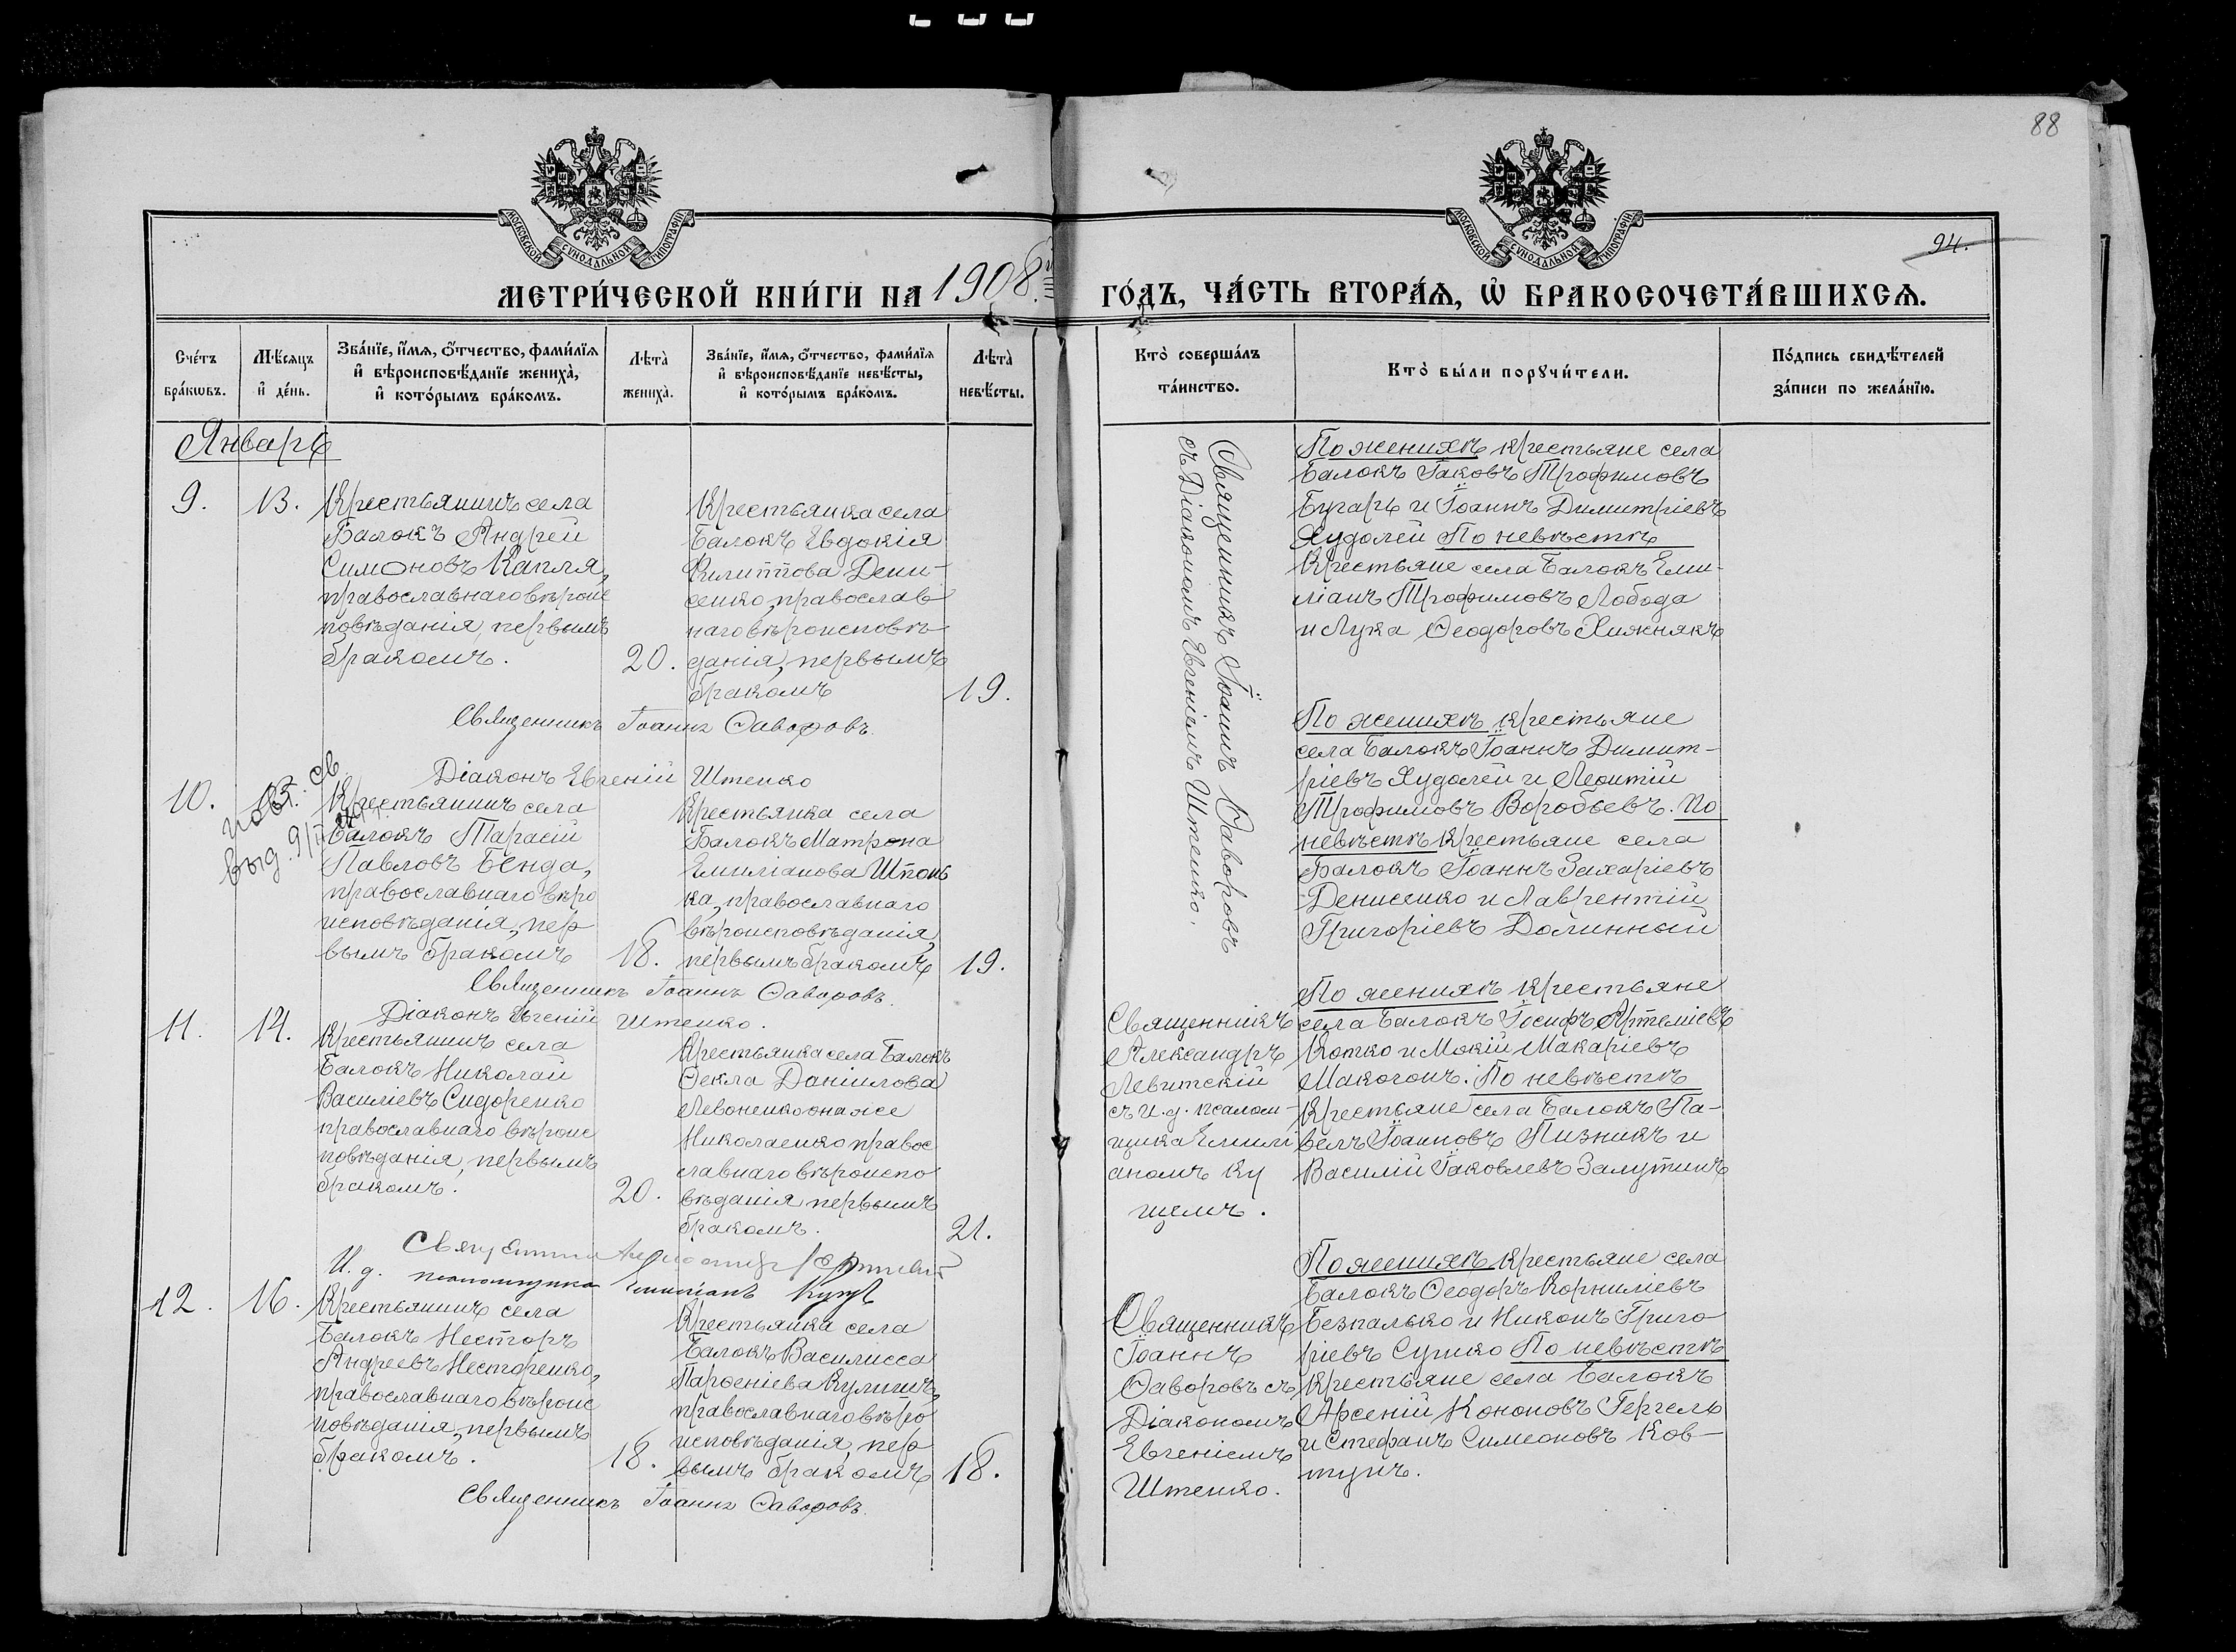 88
94.
МОСКОВСКОЙ СУНОДАЛЬНОЙ ТИПОГРАФІИ
МОСКОВСКОЙ СУНОДАЛЬНОЙ ТИПОГРАФІИ
МЕТРИ́ЧЕСКОЙ КНИ́ГИ НА 1908й
ГО́ДЪ, ЧА́СТЬ ВТОРА́Ѧ, Ѡ҆ БРАКОСОЧЕТА́ВШИХСѦ.
Сче́тъ
бра́кѡвъ.
Мѣ́сѧцъ
и҆ де́нь.
Зва́нїе, и҆́мѧ, ѻ҆́тчество, фами́лїѧ
и҆ вѣроисповѣ́данїе жениха̀,
и҆ кото́рымъ бра́комъ.
Лѣта̀
жениха̀.
Зва́нїе, и҆́мѧ, ѻ҆́тчество, фами́лїѧ
и҆ вѣроисповѣ́данїе невѣ́сты,
и҆ кото́рымъ бра́комъ.
Лѣта̀
невѣ́сты.
Кто̀ соверша́лъ
та́инство.
Кто̀ бы́ли порꙋчи́тели.
По́дпись свидѣ́телей
за́писи по жела́нїю.
Январь
9.
13.
Крестьянинъ села
Балокъ Андрей
Симоновъ Капля,
православнаго вѣроис
повѣданія, первымъ
бракомъ.
20.
Крестьянка села
Балокъ Евдокія
Филиппова Дени-
сенко, православ
наго вѣроисповѣ-
данія, первымъ
бракомъ
19.
Священникъ Іоаннъ Ѳаворовъ.
Діаконъ Евгеній Штепко
Священникъ Іоаннъ Ѳаворовъ
съ Діакономъ Евгеніемъ Штепко.
По женихѣ крестьяне села
Балокъ Іаковъ Трофимовъ
Бугарь и Іоаннъ Димитріевъ
Худолей По невѣстѣ
Крестьяне села Балокъ Еми-
ліанъ Трофимовъ Лобода
и Лука Ѳеодоровъ Хижнякъ
10.
повт. св
выд. 9/
Крестьянинъ села
Балокъ Тарасій
Павловъ Бенда,
православнаго вѣро
исповѣданія, пер
вымъ бракомъ
18.
Крестьянка села
Балокъ Матрона
Емиліанова Шпонь
ка, православнаго
вѣроисповѣданія,
первымъ бракомъ
19.
Священникъ Іоаннъ Ѳаворовъ.
Діаконъ Евгеній Штепко.
По женихѣ крестьяне
села Балокъ Іоаннъ Димит-
ріевъ Худолей и Леонтій
Трофимовъ Воробьевъ. По
невѣстѣ крестьяне села
Балокъ Іоаннъ Захаріевъ
Денисенко и Лаврентій
Григоріевъ Долинный
11.
14.
Крестьянинъ села
Балокъ Николай
Василіевъ Сидоренко
православнаго вѣроис
повѣданія, первымъ
бракомъ.
20.
Крестьянка села Балокъ
Ѳекла Даніилова
Левоненко она же
Николаенко правос
славнаго вѣроиспо
вѣданія первымъ
бракомъ.
21.
И. д. псаломщика Емиліанъ Куцъ
Священникъ
Александръ
Левитскій
съ и. д. псалом-
щика Емилі
аномъ Ку
щемъ.
По женихѣ крестьяне
села Балокъ Іосифъ Артеміевъ
Котко и Мокій Макаріевъ
Макогонъ. По невѣстѣ
Крестьяне села Балокъ Па-
велъ Іоанновъ Пизникъ и
Василій Іаковлевъ Залутинъ
12.
16.
Крестьянинъ села
Балокъ Несторъ
Андреевъ Несторенко,
православнаго вѣроис
повѣданія, первымъ
бракомъ.
18.
Крестьянка села
Балокъ Василисса
Парѳеніева Кулишъ,
православнаго вѣро
исповѣданія, пер
вымъ бракомъ
18.
Священникъ Іоаннъ Ѳаворовъ.
Священникъ
Іоаннъ
Ѳаворовъ съ
Діакономъ
Евгеніемъ
Штепко.
По женихѣ крестьяне села
Балокъ Ѳеодоръ Корниліевъ
Безпалько и Никонъ Григо
ріевъ Сушко По невѣстѣ
Крестьяне села Балокъ
Арсеній Кононовъ Гергель
и Стефанъ Симеоновъ Ков-
тунъ.